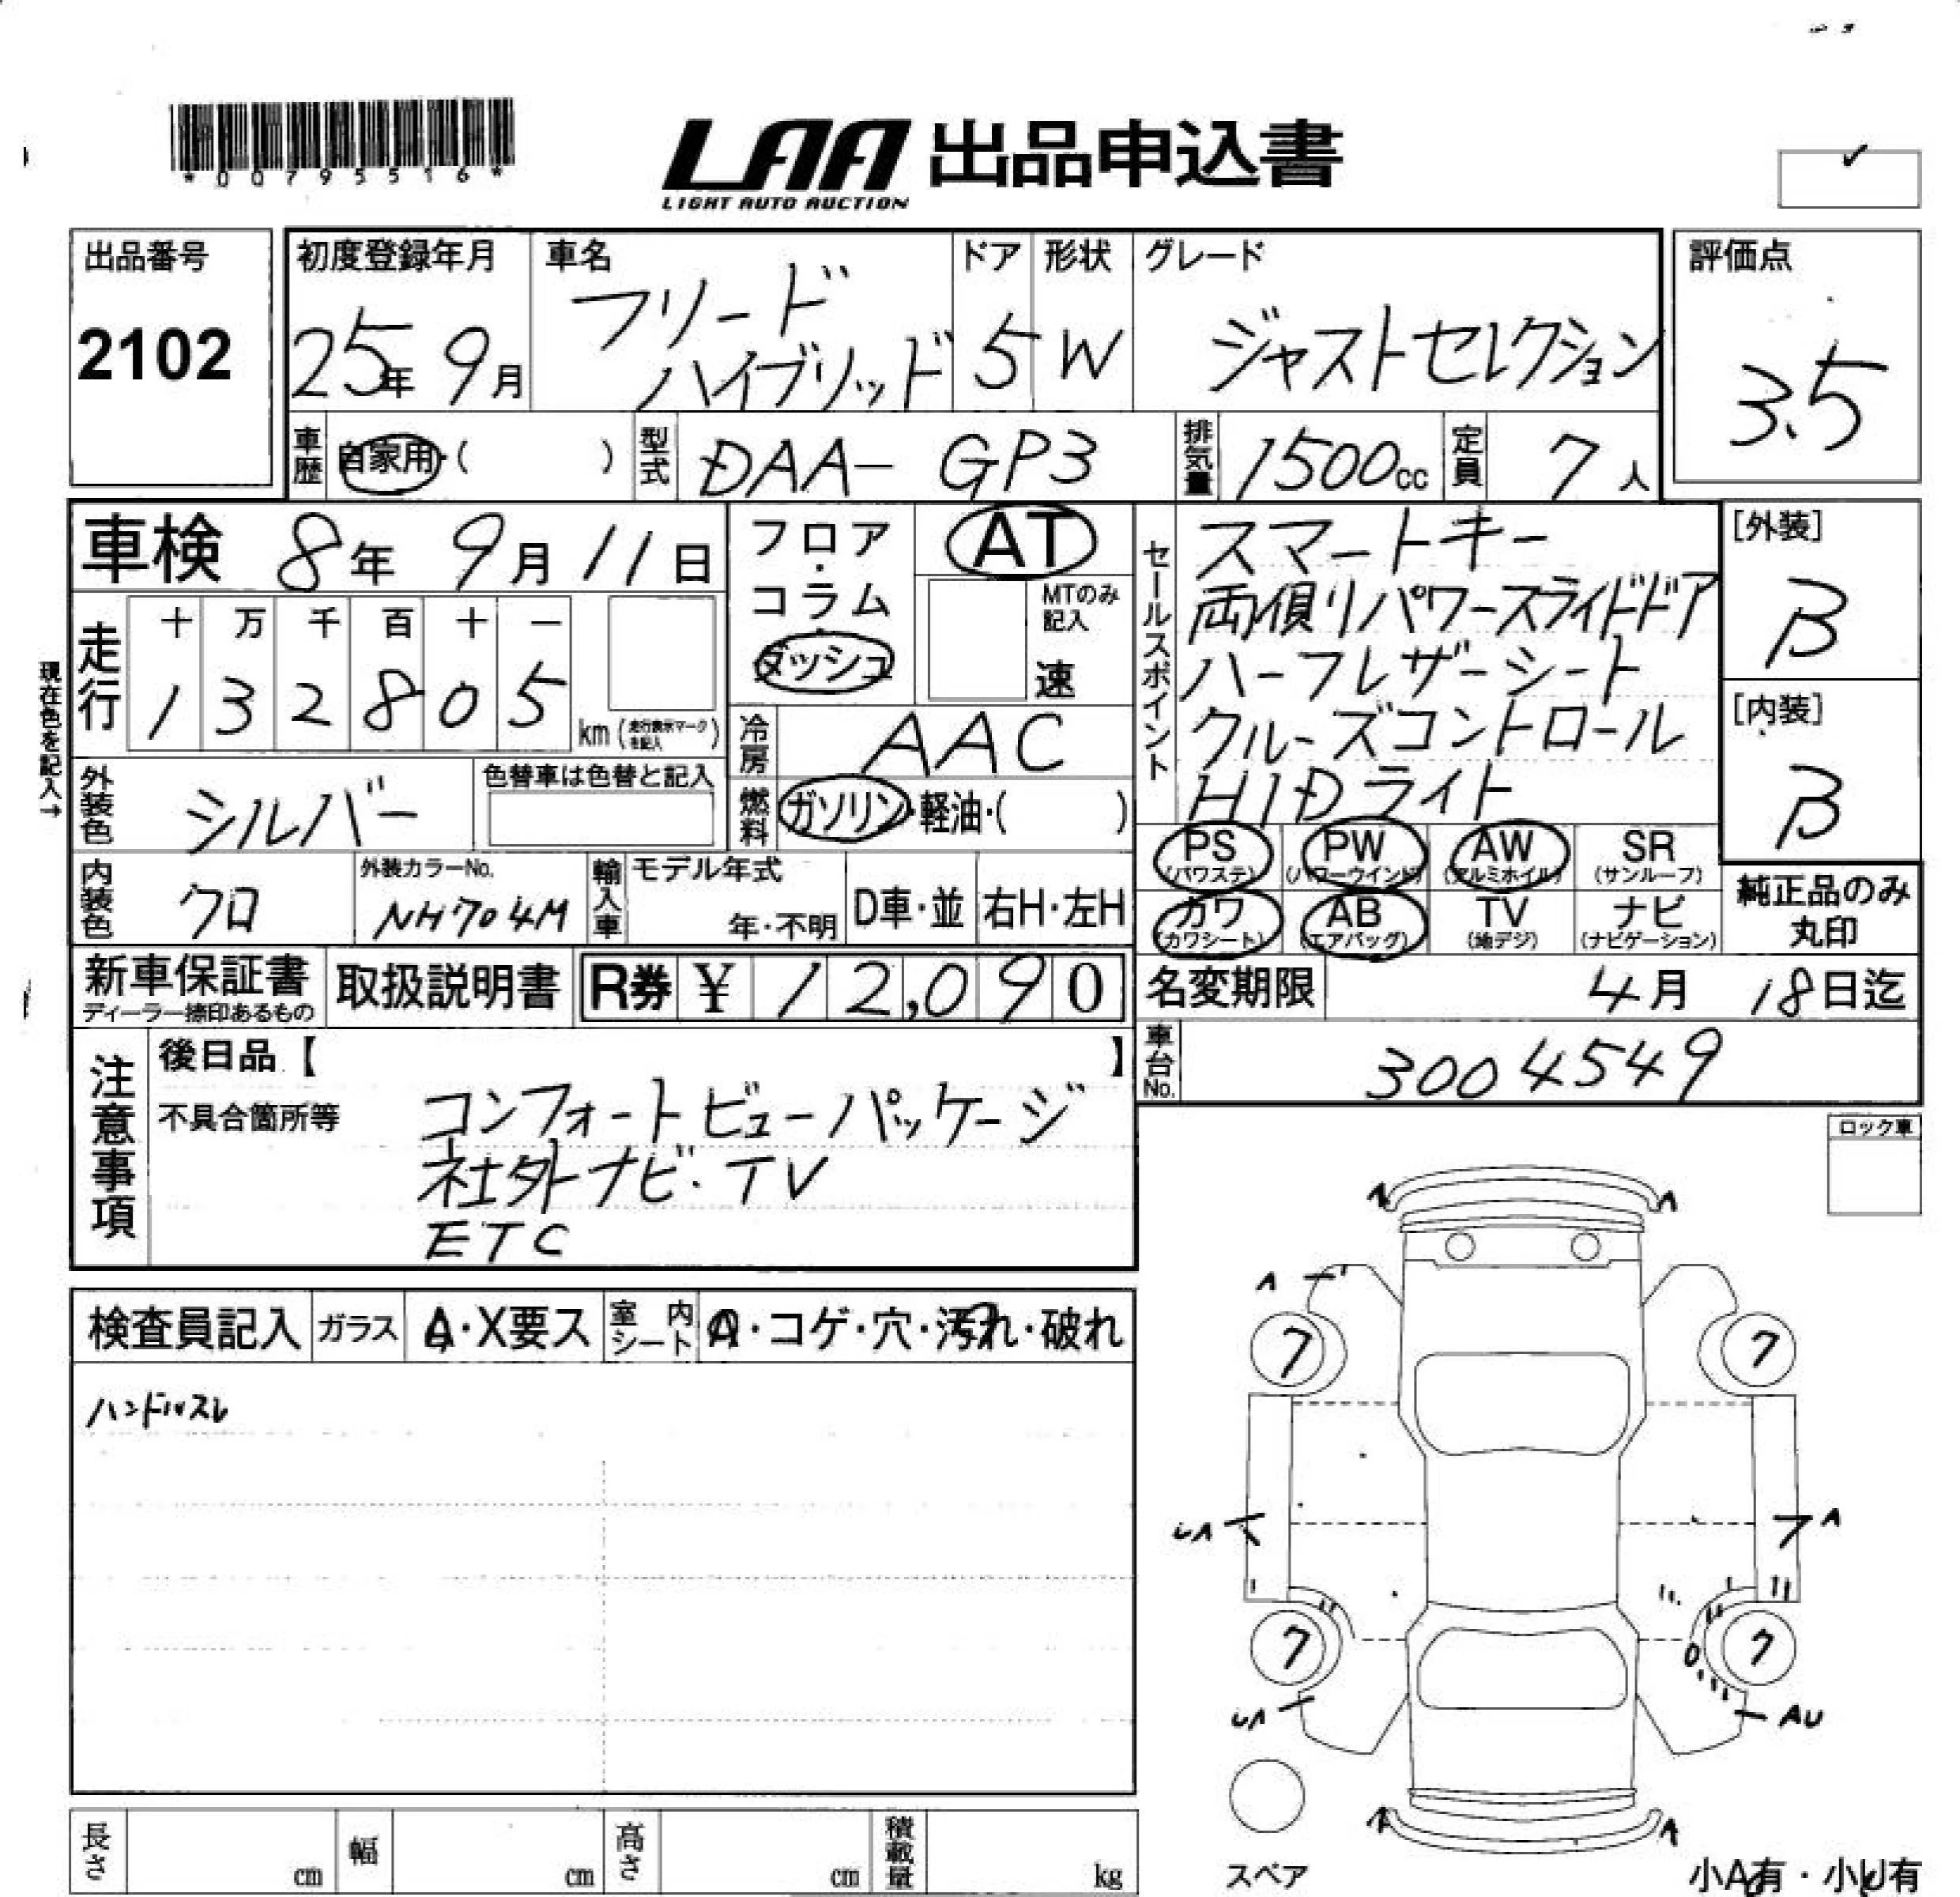 *00795516*
LAA 出品申込書
LIGHT AUTO AUCTION
出品番号
2102
初度登録年月
25年 9月
車名
フリード
ハイブリッド
ドア
5
形状
W
グレード
ジャストセレクション
評価点
3.5
車歴
自家用・( )
型式
DAA- GP3
排気量
1500cc
定員
7人
車検 8年 9月 11日
フロア・
コラム・
ダッシュ
AT
MTのみ
記入
速
現在色を記入→
走行
十 万 千 百 十 一
1 3 2 8 0 5
km (走行表示マークを記入)
冷房
AAC
外装色
シルバー
色替車は色替と記入
燃料
ガソリン・軽油・( )
内装色
クロ
外装カラーNo.
NH704M
輸入車
モデル年式
年・不明
D車・並
右H・左H
セールスポイント
スマートキー
両側リパワースライドドア
ハーフレザーシート
クルーズコントロール
HIDライト
[外装]
B
[内装]
B
PS
(パワステ)
PW
(パワーウインド)
AW
(アルミホイル)
SR
(サンルーフ)
カワ
(カワシート)
AB
(エアバッグ)
TV
(地デジ)
ナビ
(ナビゲーション)
純正品のみ
丸印
新車保証書
ディーラー捺印あるもの
取扱説明書
R券 ¥ 12,090
名変期限 4月 18日迄
車台No.
3004549
注意事項
後日品【 】
不具合箇所等
コンフォートビューパッケージ
社外ナビ・TV
ETC
ロック車
検査員記入
ガラス
A・X要ス
室内
シート
A・コゲ・穴・汚れ・破れ
ハンドルスレ
A A
A
7 7
UA A
7 7
UA AU
A A
スペア
小A有・小U有
長さ cm
幅 cm
高さ cm
積載量 kg